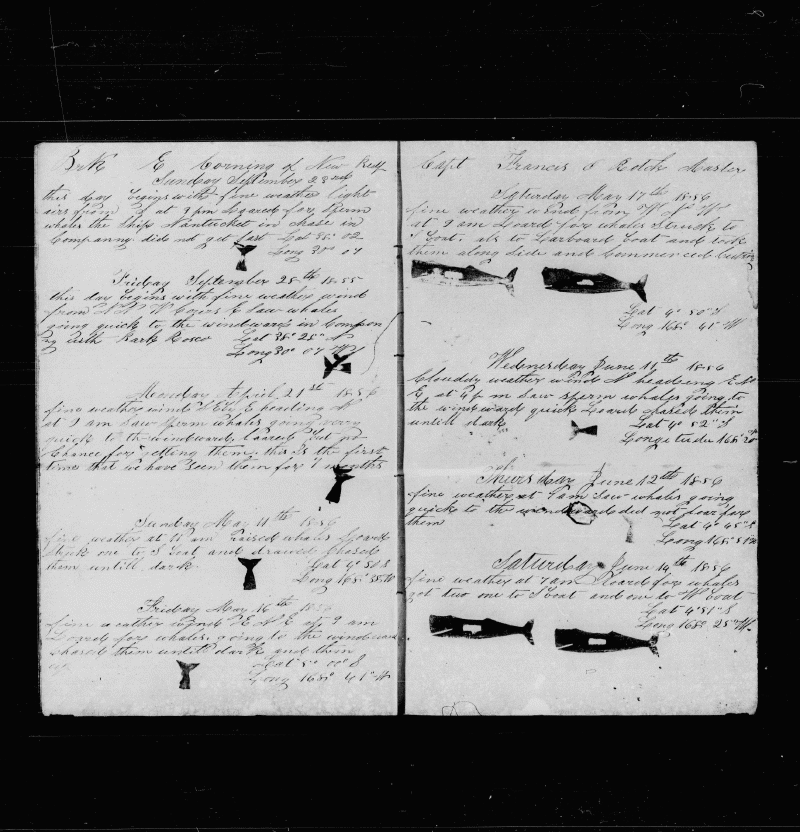 Brk E Corning of New Bedf
Sunday September 23rd
this day begins with fine weather light
airs from at 3 pm Loared for Sperm
whales the Ship Nantucket in chase in
Companny did not get fast Lat 38° 02
Long 30° 04
Friday September 28th 1855
this day begins with fine weather wind
from Saw whales
going quick to the windward in Compan
ny with Bark Lat 38° 25" N
Long 30° 04 W
Monday April 21st 1856
fine weather wind E by E heading N
at 9 am Saw Sperm whales going very
quick to the windward loared but no
Chance for getting them this is the first
time that we have seen them for 4 months
Sunday May 11th 1856
fine weather at 11 am raised whales Loared
Struck one to S boat and drawed Chased
them untill dark Lat 4° 50 S
Long 168° 38
Friday May 16th 1856
fine weather wind E N E at 9 am
Loared for whales going to the windward
chased them untill dark and
Lat 5° 00" S
Long 168° 41" W
Capt Francis Rotch Master
Saturday May 17th 1856
fine weather wind from W N W
at 9 am Loard for whales Struck to
Boat to Larboard boat and took
them along Side and Commenced Cutting
Lat 4° 50" S
Long 168° 41" W
Wednesday June 11th 1856
Clouddy weather wind N heading E
E at 4 p m Saw Sperm whales going to
the windward quick Loard chased them
untill dark Lat 4° 52" S
Longitude 168° 20"
Thursday June 12th 1856
fine weather at 9 am Saw whales going
quick to the windward did not Loar for
them Lat 4° 45" S
Loong 168°
Saturday June 14th 1856
fine weather at 7 am Loard for whales
got two one to S boat and one to W boat
Lat 4° 51" S
Long 168° 25" W.